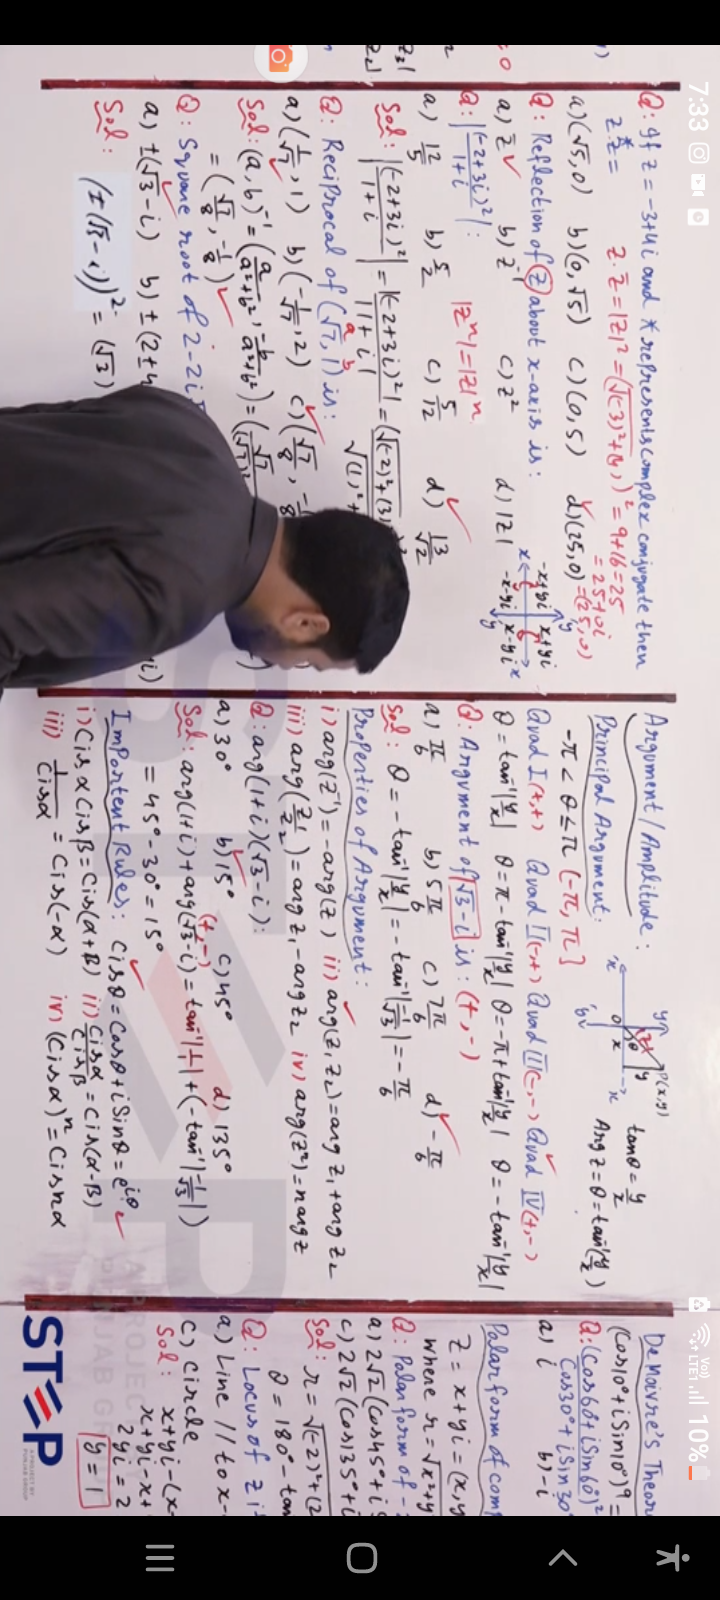 7:33
Vo)) LTE1
10%
Q: If z = -3+4i and * represents complex conjugate then
z.z* =
z.z̄ = |z|² = (√(-3)²+(4)²)² = 9+16=25
= 25+0i
= (25,0)
a) (√5,0) b) (0,√5) c) (0,5) d) (25,0)
Q: Reflection of z about x-axis is:
a) z̄ b) z⁻¹ c) z² d) |z|
-x+yi x+yi
-x-yi x-yi
Q: |(-2+3i)²/1+i| :
|zⁿ| = |z|ⁿ
a) 12/5 b) 5/2 c) 5/12 d) 13/√2
Sol: |(-2+3i)²/1+i| = |(-2+3i)²|/|1+i| = (√(-2)²+(3)
Q: Reciprocal of (√7, 1) is:
a b
a) (1/√7, 1) b) (-1/√7, 2) c) (√7/8, -1/8
Sol: (a,b)⁻¹ = (a/a²+b², -b/a²+b²) = (√7
= (√7/8, -1/8)
Q: Square root of 2-2i
a) ±(√3-i) b) ±(2±
Sol:
(±(√3-i))² = (√3)
Argument/Amplitude:
P(x,y)
tanθ = y/x
Arg z = θ = tan⁻¹(y/x)
Principal Argument:
-π < θ ≤ π (-π, π]
Quad I (+,+) Quad II (-,+) Quad III (-,-) Quad IV (+,-)
θ = tan⁻¹|y/x| θ = π - tan⁻¹|y/x| θ = -π + tan⁻¹|y/x| θ = -tan⁻¹|y/x|
Q: Argument of √3-i is: (+,-)
a) π/6 b) 5π/6 c) 7π/6 d) -π/6
Sol: θ = -tan⁻¹|y/x| = -tan⁻¹|-1/√3| = -π/6
Properties of Argument:
i) arg(z⁻¹) = -arg(z) ii) arg(z₁z₂) = arg z₁ + arg z₂
iii) arg(z₁/z₂) = arg z₁ - arg z₂ iv) arg(zⁿ) = n arg z
Q: arg(1+i)(√3-i):
a) 30° b) 15° c) 45° d) 135°
(+,-)
Sol: arg(1+i) + arg(√3-i) = tan⁻¹|1/1| + (-tan⁻¹|-1/√3|)
= 45° - 30° = 15°
Important Rules: Cisθ = Cosθ + i Sinθ = e^iθ
i) Cisα Cisβ = Cis(α+β) ii) Cisα/Cisβ = Cis(α-β)
iii) 1/Cisα = Cis(-α) iv) (Cisα)ⁿ = Cis nα
De Moivre's Theor
(Cos10°+iSin10°)⁹ =
Q: (Cos60°+iSin60°)²
Cos30°+iSin30°
a) i b) -i
Polar form of comp
z = x+yi = (x,y
where r = √x²+y
Q: Polar form of -
a) 2√2 (Cos45°+i
c) 2√2 (Cos135°+i
Sol: r = √(-2)²+(2
θ = 180° - tan
Q: Locus of z i
a) Line // to x-
c) Circle
Sol: x+yi-(x-
x+yi-x+
2yi = 2
y = 1
STEP
A PROJECT BY
PUNJAB GROUP